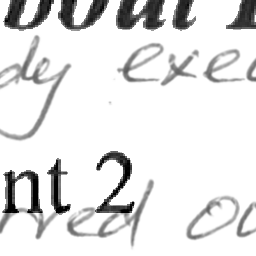 bout
dy exec
nt 2
rred ou